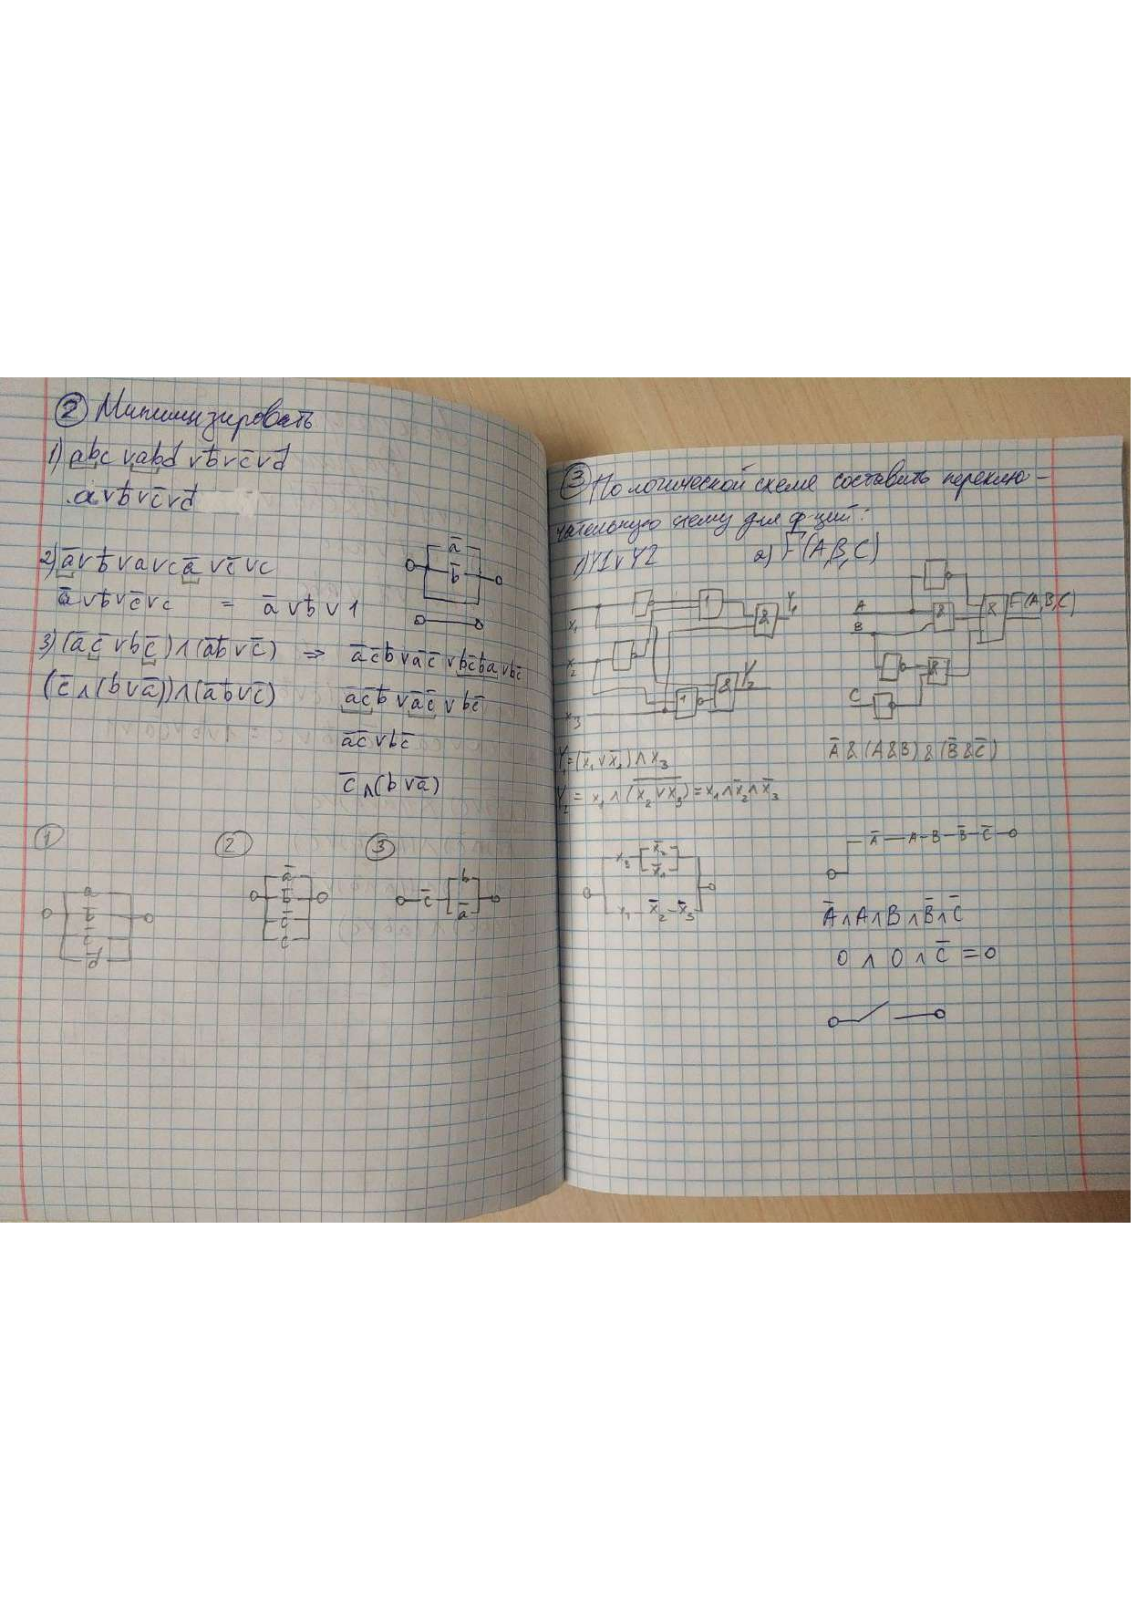 ② Минимизировать
1) abc v abd v b̅ v c̅ v d̅
a v b̅ v c̅ v d̅
2) a̅ v b̅ v a v c a̅ v c̅ v c
a̅ v b̅ v c̅ v c = a̅ v b̅ v 1
a̅
b̅
3) (a̅ c̅ v b c̅) ∧ (a̅ b̅ v c̅) ⇒ a̅ c̅ b̅ v a̅ c̅ v b c̅ b̅ a̅ v b c̅
(c̅ ∧ (b v a̅)) ∧ (a̅ b̅ v c̅)
a̅ c̅ b̅ v a̅ c̅ v b c̅
a̅ c̅ v b c̅
c̅ ∧ (b v a̅)
①
a
b̅
c̅
d̅
②
a̅
b̅
c̅
c
③
c̅
b
a̅
③ По логической схеме составить переклю-
чательную схему для ф-ций:
1) Y1 v Y2
2) F(A,B,C)
x₁
x₂
x₃
1
&
Y₁
1
&
Y₂
A
B
C
&
&
&
F(A,B,C)
Y₁ = (x̅₁ v x̅₂) ∧ x₃
Y₂ = x₁ ∧ (x̅₂ v x̅₃) = x₁ ∧ x̅₂ ∧ x̅₃
A̅ & (A & B) & (B̅ & C̅)
x₃
x̅₂
x̅₁
x₁ x̅₂ - x̅₃
A̅ — A - B - B̅ - C̅
A̅ ∧ A ∧ B ∧ B̅ ∧ C̅
0 ∧ 0 ∧ C̅ = 0